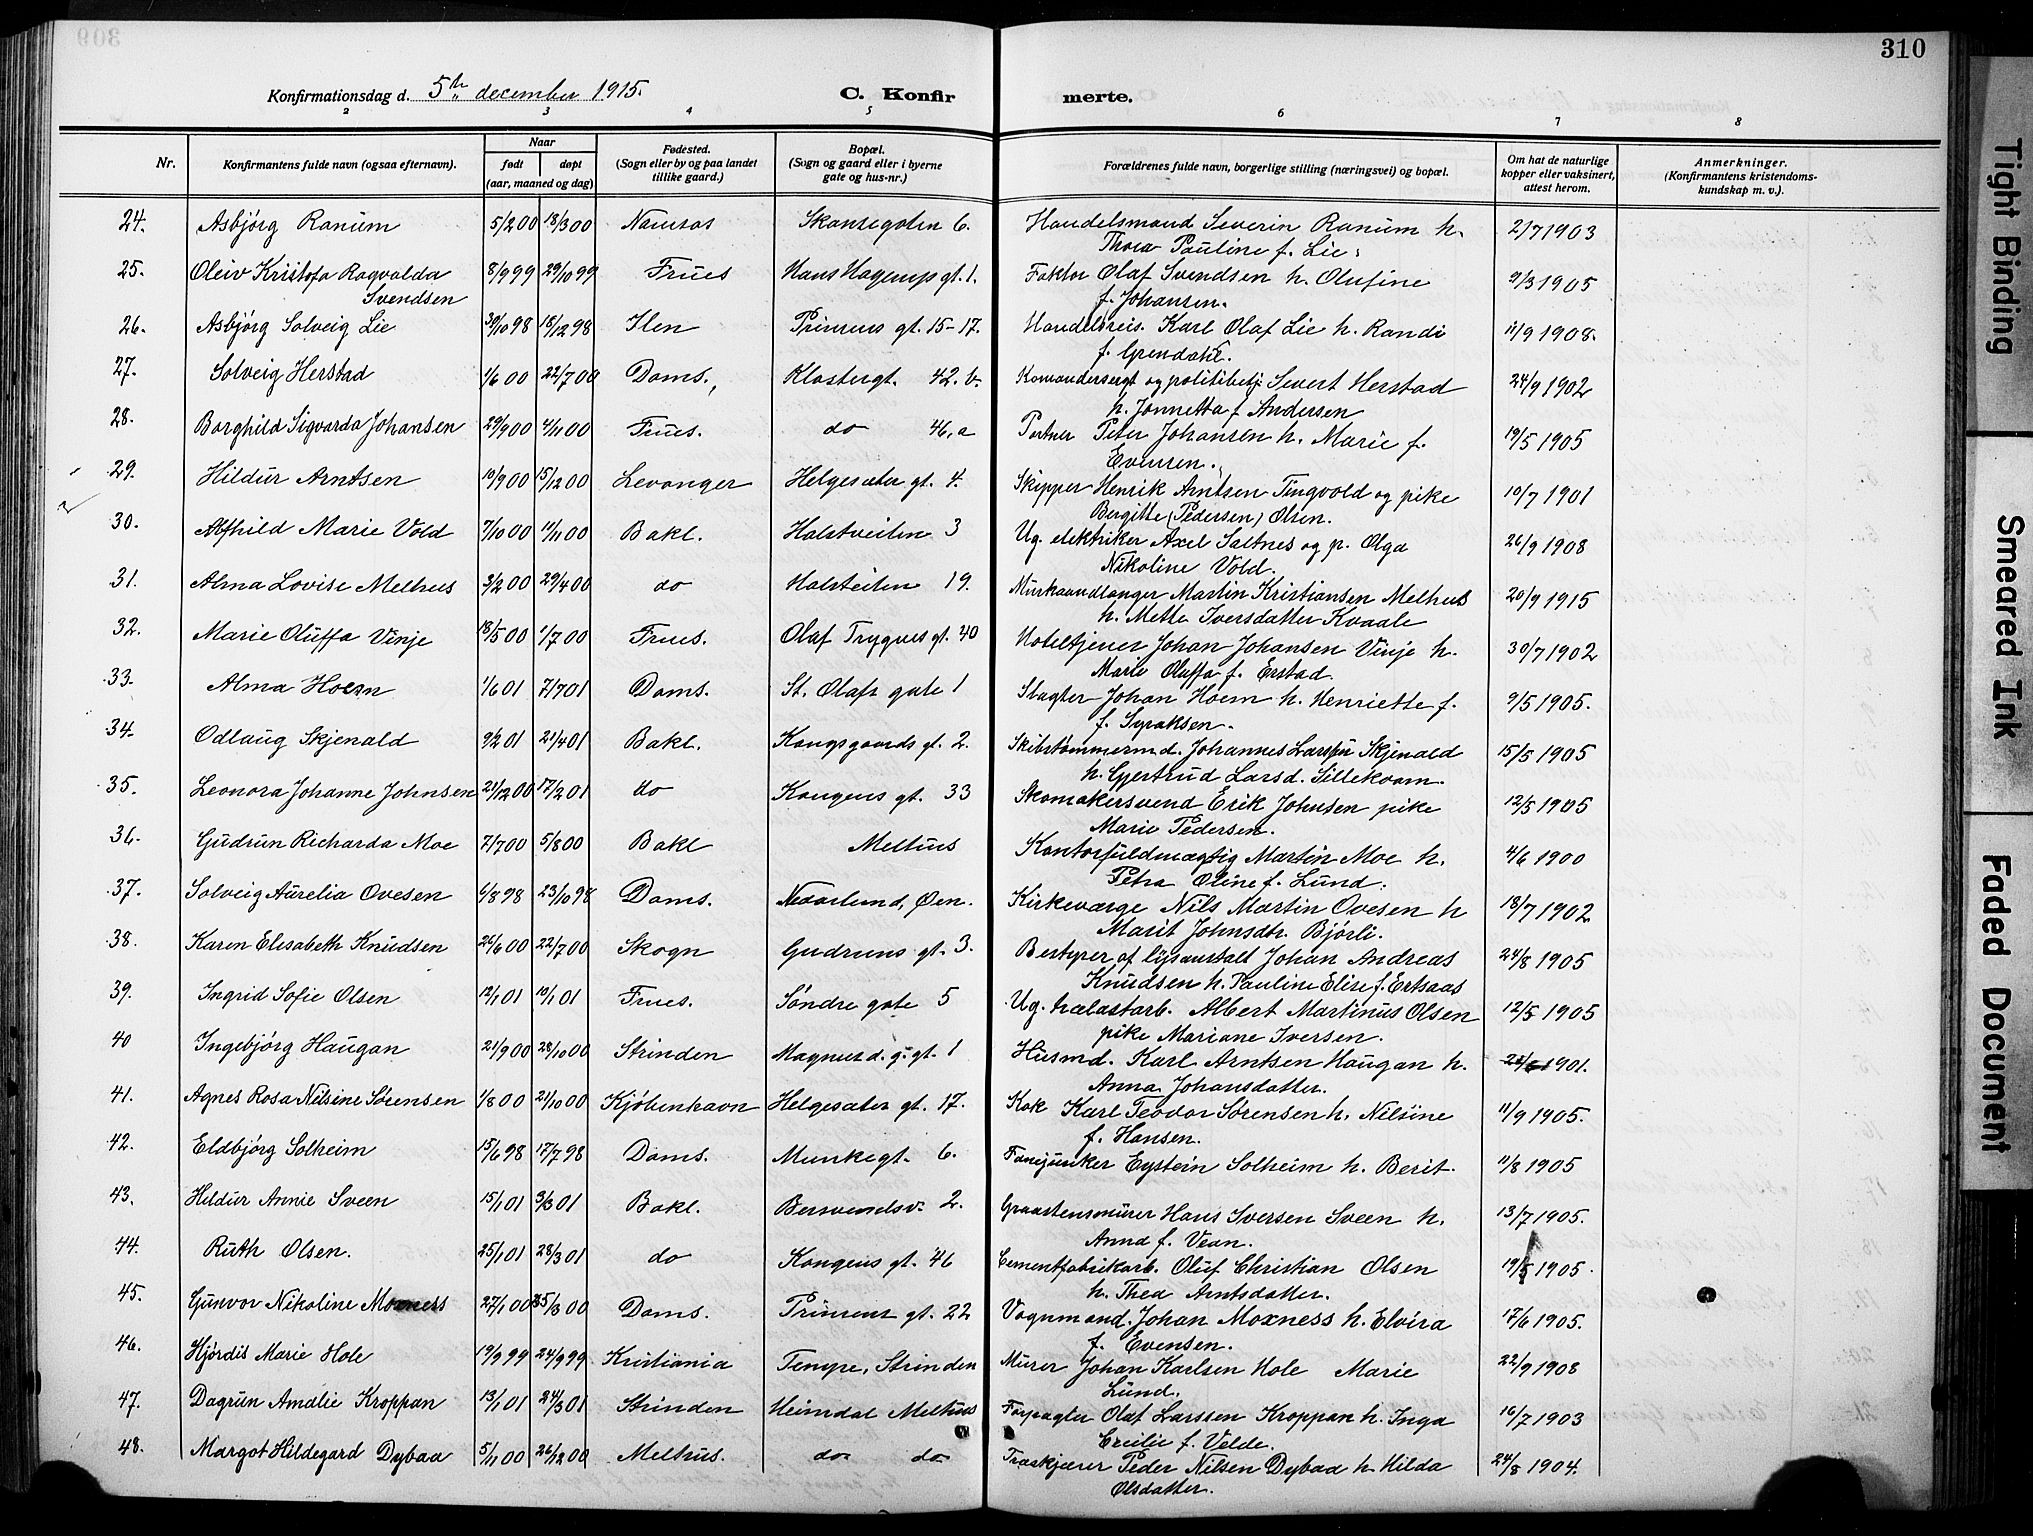 309
310
Konfirmationsdag d. 5te december 1915. C. Konfir merte.
2 3 4 5 6 7 8
Nr. Konfirmantens fulde navn (ogsaa efternavn). Naar født døpt (aar, maaned og dag) Fødested. (Sogn eller by og paa landet tillike gaard.) Bopæl. (Sogn og gaard eller i byerne gate og hus-nr.) Forældrenes fulde navn, borgerlige stilling (næringsvei) og bopæl. Om hat de naturlige kopper eller vaksinert, attest herom. Anmerkninger. (Konfirmantens kristendoms-kundskap m. v.).
24. Asbjørg Ranum 5/2 00 18/3 00 Namsos Skansegaten 6. Handelsmand Severin Ranum h. 2/7 1903
Thora Pauline f. Lie.
25. Oleiv Kristofa Ragvalda 8/9 99 29/10 99 Frues Hans Hagerups gt. 1. Faktor Olaf Svendsen h. Olufine 9/3 1905
Svendsen f. Johansen.
26. Asbjørg Solveig Lie 30/10 98 18/12 98 Ilen Prinsens gt. 15-17. Handelsreis. Karl Olaf Lie h. Randi 11/9 1908.
f. Grendahl.
27. Solveig Herstad 1/6 00 22/7 00 Doms. Klostergt. 42. b. Komandersergt og politibetj. Sivert Herstad 24/9 1902
h. Jonnetta f. Andersen
28. Borghild Sigvarda Johansen 29/9 00 4/11 00 Frues. do 46, a Portner Peter Johansen h. Marie f. 19/5 1905
Evensen.
29. Hildur Arntsen 10/9 00 15/12 00 Levanger Helgesæter gt. 4. Skipper Henrik Arntsen Tingvold og pike 10/7 1901
Bergitte (Pedersen) Olsen.
30. Alfhild Marie Vold 7/10 00 11/11 00 Bakl. Halsetveiten 3 Ug. elektriker Axel Saltnes og p. Olga 26/9 1908
Nikoline Vold.
31. Alma Lovise Melhus 3/2 00 29/4 00 do Halsteiten 19. Murhaandlanger Martin Kristiansen Melhus 20/9 1915
h. Mette Iversdatter Kvaale
32. Marie Oluffa Vinje 18/5 00 1/7 00 Frues. Olaf Trygves gt. 40 Hoteltjener Johan Johansen Vinje h. 30/7 1902
Marie Oluffa f. Erstad.
33. Alma Hoem 1/6 01 7/7 01 Doms. St. Olafs gate 1 Slagter Johan Hoem h. Henriette f. 9/5 1905.
f. Syraksen.
34. Odlaug Skjenald 9/2 01 21/4 01 Bakl. Kongsgaards gt. 2. Skibstømmermd. Johannes Larsen Skjenald 15/5 1905
h. Gjertrud Larsd. Sillekoam.
35. Leonora Johanne Johnsen 21/12 00 17/2 01 do Kongens gt. 33 Skomakersvend Erik Johnsen pike 12/5 1905
Marie Pedersen.
36. Gudrun Richarda Moe 7/7 00 5/8 00 Bakl Melhus Kontorfuldmægtig Martin Moe h. 4/6 1900
Petra Oline f. Lund.
37. Solveig Aurelia Ovesen 6/8 98 23/10 98 Doms. Øen. Kirkeværge Nils Martin Ovesen h 18/7 1902
Marit Johnsdtr. Bjørli.
38. Karen Elisabeth Knudsen 26/6 00 22/7 00 Skogn Gudruns gt. 3. Bestyrer af lysanstalt Johan Andreas 24/8 1905
Knudsen h. Pauline Elise f. Ertsaas
39. Ingrid Sofie Olsen 12/1 01 19/1 01 Frues. Søndre gate 5 Ug. hælastarb. Albert Martinus Olsen 12/5 1905
pike Mariane Iversen.
40 Ingebjørg Haugan 21/9 00 28/10 00 Strinden Magnus d. g. gt. 1 Husmd. Karl Arntsen Haugan h. 1901.
Anna Johansdatter.
41. Agnes Rosa Nilsine Sørensen 1/8 00 21/10 00 Kjøbenhavn Helgesæter gt. 17. Kok Karl Teodor Sørensen h. Nilsine 11/9 1905.
f. Hansen.
42. Eldbjørg Solheim 15/6 98 17/7 98 Doms. Munkegt. 6. Fanejunker Eystein Solheim h. Berit. 11/8 1905
43. Hildur Annie Sveen 15/1 01 3/3 01 Bakl. Bersvendsv. 2. Graastensmurer Hans Iversen Sveen h. 13/7 1905.
Anna f. Vean.
44. Ruth Olsen. 25/1 01 28/3 01 do Kongens gt. 46 Cementfabrikarb. Oluf Christian Olsen 19/5 1905.
h. Thea Arntsdatter.
45. Gunvor Nikoline Moxness 27/1 00 25/3 00 Doms. Prinsens gt. 22 Vognmand. Johan Moxness h. Elvira 17/6 1905.
f. Evensen.
46. Hjørdis Marie Hole 19/9 99 24/9 99 Kristiania Tempe, Strinden Murer Johan Karlsen Hole Marie 22/9 1908
Lund.
47. Dagrun Amalie Kroppan 13/1 01 24/3 01 Strinden Heimdal Melhus Forpagter Olaf Larssen Kroppan h. Inga 16/7 1903
Cecilie f. Velde.
48. Margot Hildegard Dybaa 5/11 00 26/12 00 Melhus. do do Træskjærer Peder Nilsen Dybaa h. Hilda 24/8 1904.
Olsdatter.
Tight Binding
Smeared Ink
Faded Document